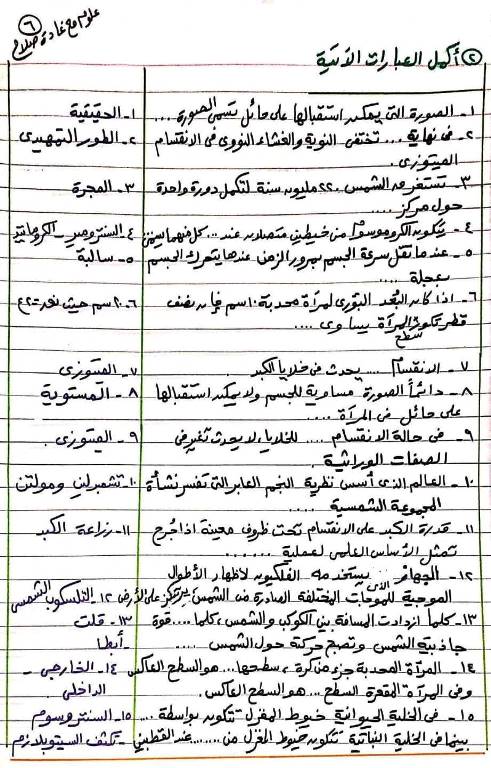 علوم مع غادة صلاح
٦
٢ أكمل العبارات الآتية
١- الصورة التى يمكن استقبالها على حائل تسمى الصورة ... ١- الحقيقية
٢- فى نهاية ... تختفى النوية والغشاء النووى فى الانقسام ٢- الطور التمهيدى
الميتوزى.
٣- تستغرق الشمس ٢٢٠ مليون سنة لتكمل دورة واحدة ٣- المجرة
حول مركز ....
٤- يتكون الكروموسوم من خيطين متصلان عند ... كل منهما يسمى ٤- السنترومير - الكروماتيد
٥- عندما تقل سرعة الجسم بمرور الزمن عندها يتحرك الجسم ٥- سالبة
بعجلة ....
٦- اذا كان البعد البؤرى لمرآة محدبة ١٠سم فإن نصف ٦- ٢٠سم حيث نق=٢ع
قطر تكور سطح المرآة يساوى ....
٧- الانقسام .... يحدث فى خلايا الكبد. ٧- الميتوزى
٨- دائماً الصورة مساوية للجسم ولا يمكن استقبالها ٨- المستوية
على حائل فى المرآة ....
٩- فى حالة الانقسام .... للخلايا، لا يحدث تغير فى ٩- الميتوزى.
الصفات الوراثية.
١٠- العالم الذى أسس نظرية النجم العابر التى تفسر نشأة ١٠- تشمبرلين ومولتن
المجموعة الشمسية ....
١١- قدرة الكبد على الانقسام تحت ظروف معينة اذا جرح ١١- زراعة الكبد
تمثل الأساس العلمى لعملية ......
١٢- الجهاز الذى يستخدمه الفلكيون لاظهار الأطوال
الموجية للموجات المختلفة الصادرة من الشمس يرتكز على الأرض ١٢- التلسكوب الشمسى
١٣- كلما ازدادت المسافة بين الكوكب والشمس، كلما .... قوة ١٣- قلت
جاذبية الشمس وتصبح حركته حول الشمس .... - أبطأ
١٤- المرآة المحدبة جزء من كرة، سطحها ... هو السطح العاكس ١٤- الخارجى -
وفى المرآة المقعرة السطح ... هو السطح العاكس. الداخلى
١٥- فى الخلية الحيوانية خيوط المغزل تتكون بواسطة ... ١٥- السنتروسوم
بينما فى الخلية النباتية تتكون خيوط المغزل من ...... عند القطبين - تكثف السيتوبلازم